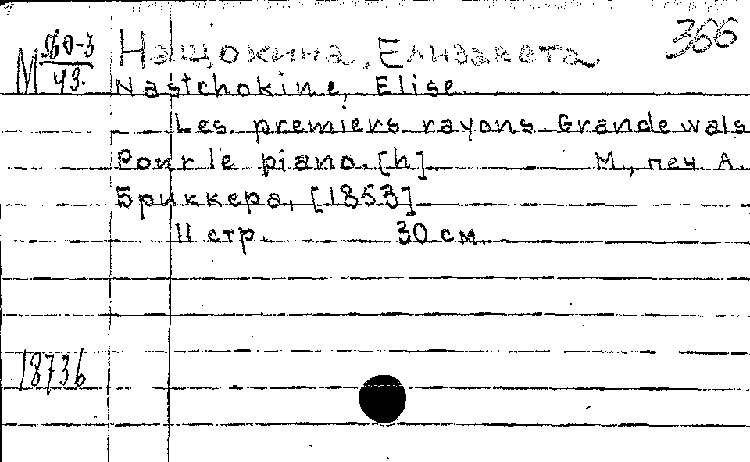 366
М 960-3
43.
Нащокина, Елизавета
Nastchokine, Elise
Les premiers rayons Grande wals
Pour le piano. [h] М., печ А.
Бриккера, [1853]
11 стр. 30 см
18736